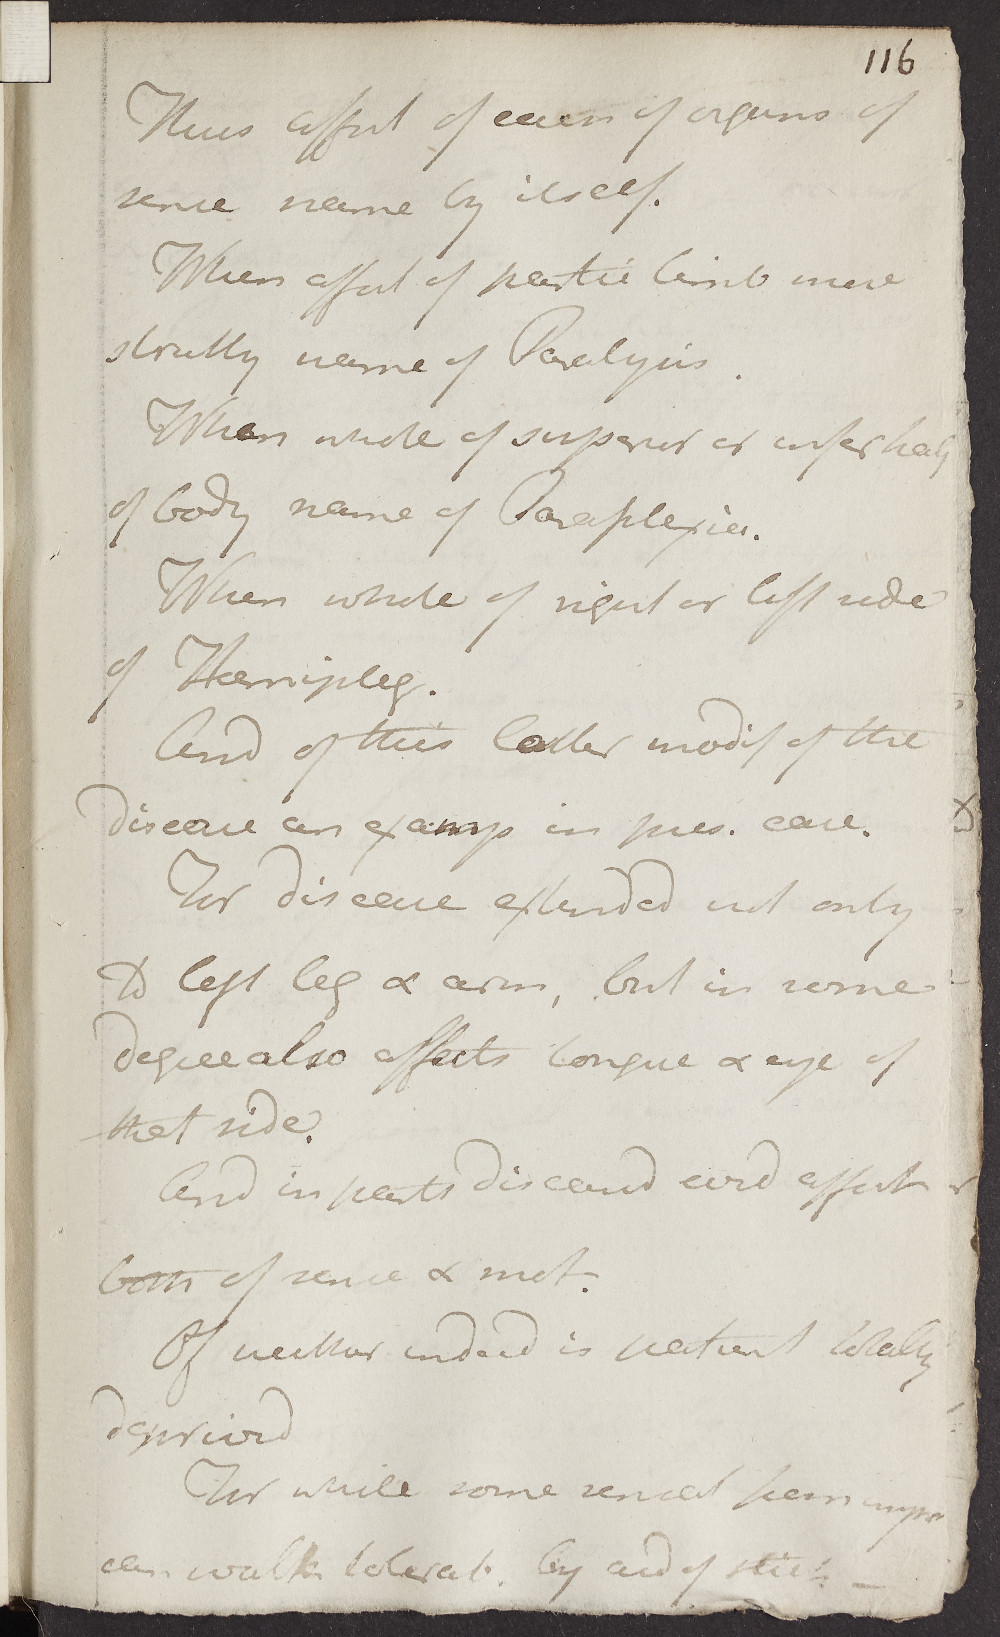 116
Thus affect of each of organs of
sense name by itself.
When affect of partic limb more
strictly name of Paralysis.
When whole of superior or infer half
of body name of Paraplexia.
When whole of right or left side
of Hemipleg.
And of this latter modif of the
disease an examp in pres. case.
For disease extended not only
to left leg & arm, but in some
degree also affects tongue & eye of
that side.
And in parts diseased evid affect
both of sense & mot.
Of neither indeed is patient totally
deprived
For while some sensat seem
can walk tolerab. by aid of stick